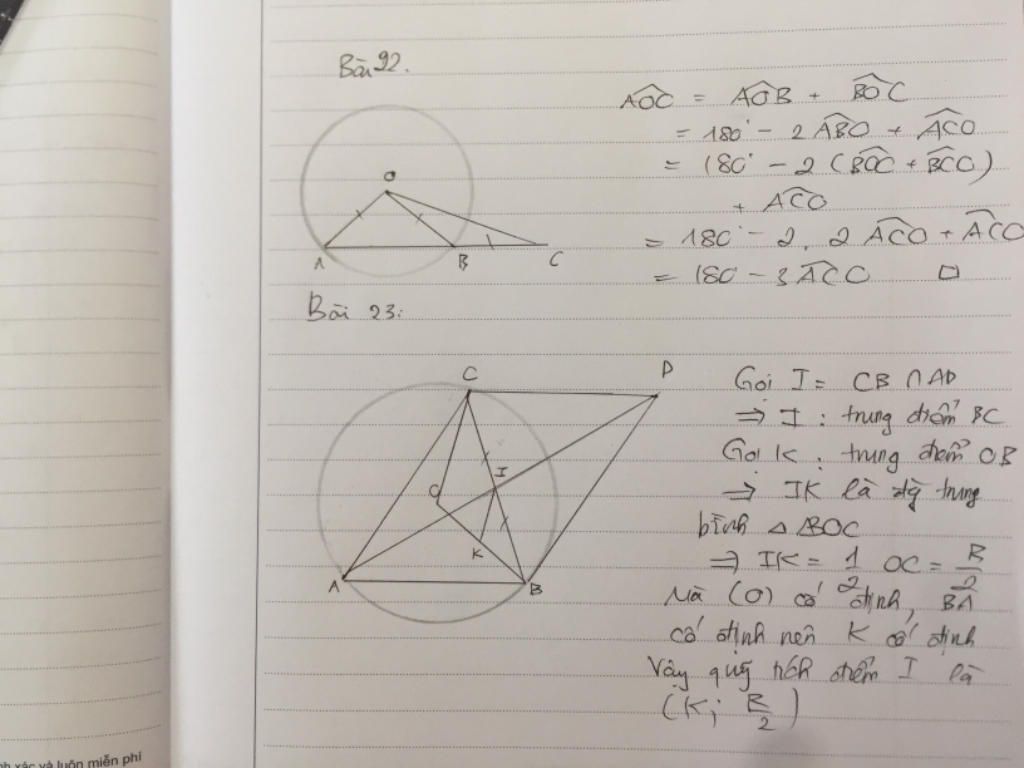 Bài 22.
O
A
B
C
AOC = AOB + BOC
= 180° - 2 ABO + ACO
= 180° - 2 (BOC + BCO)
+ ACO
= 180° - 2. 2 ACO + ACO
= 180 - 3 ACO □
Bài 23:
C
D
I
O
K
A
B
Gọi I = CB ∩ AD
⇒ I : trung điểm BC
Gọi K : trung điểm OB
⇒ IK là đg trung
bình △ BOC
⇒ IK = 1/2 OC = R/2
Mà (O) cố định, BA
cố định nên K cố định
Vậy quỹ tích điểm I là
(K; R/2)
xác và luôn miễn phí